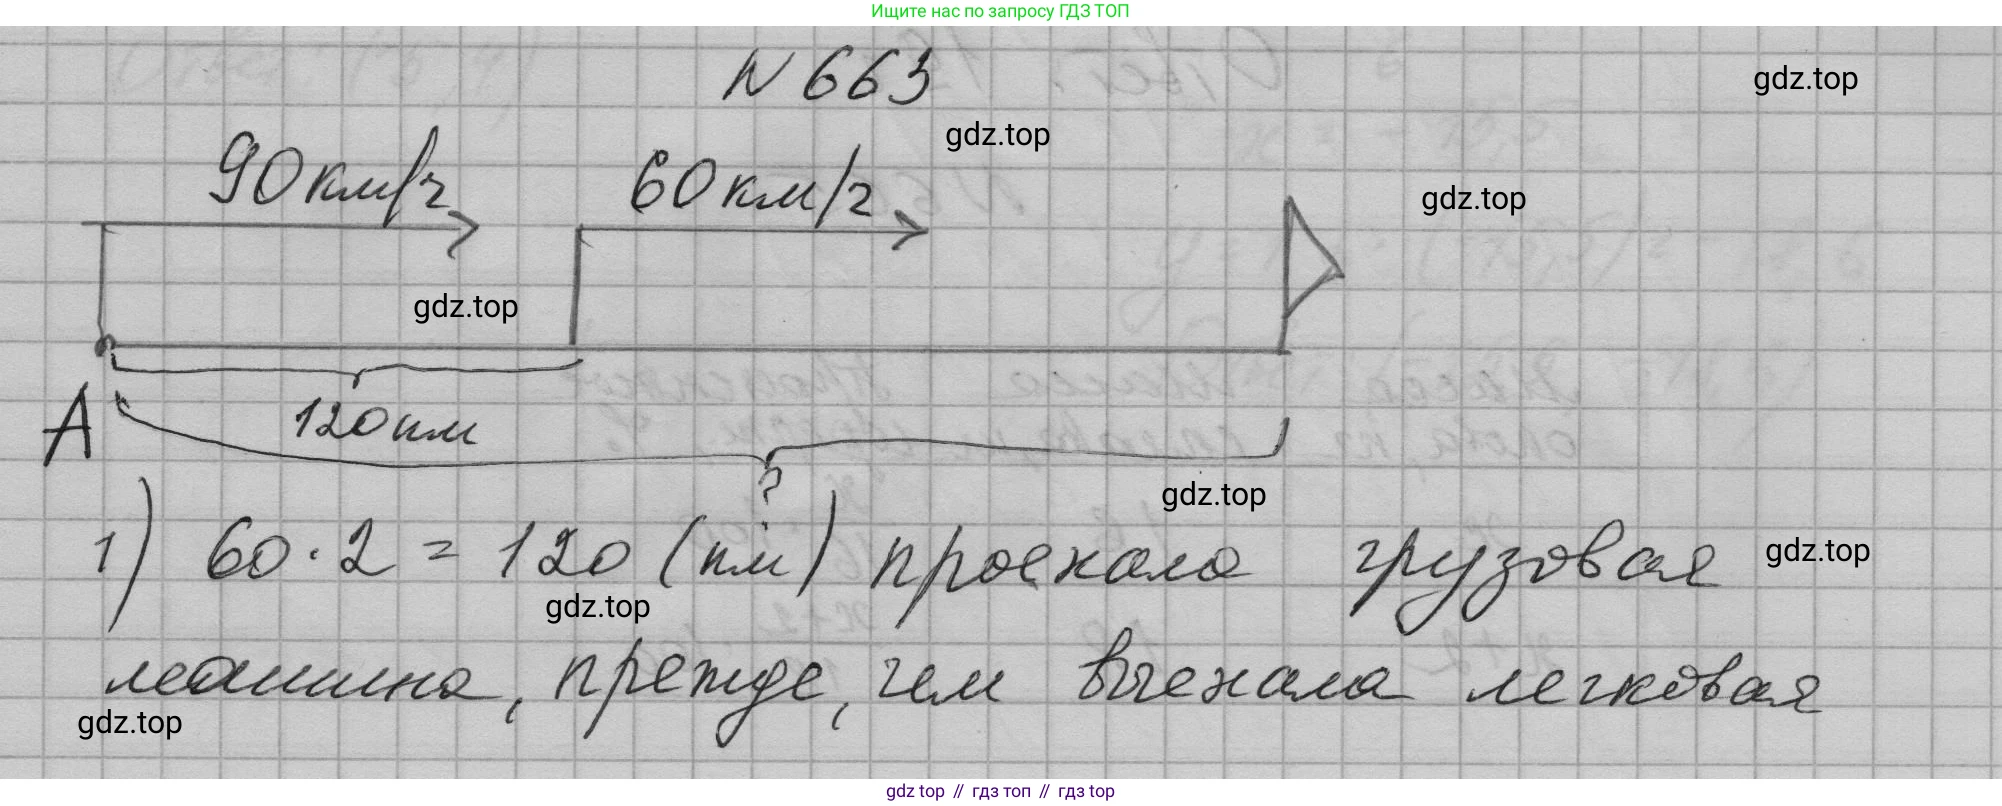 Ищите нас по запросу ГДЗ ТОП
N 663
gdz.top
gdz.top
90 км/ч
60 км/ч
gdz.top
gdz.top
120 км
А
?
gdz.top
1) 60 · 2 = 120 (км) проехала грузовая
gdz.top
gdz.top
машина, прежде, чем выехала легковая
gdz.top
gdz top // гдз топ // гдз top